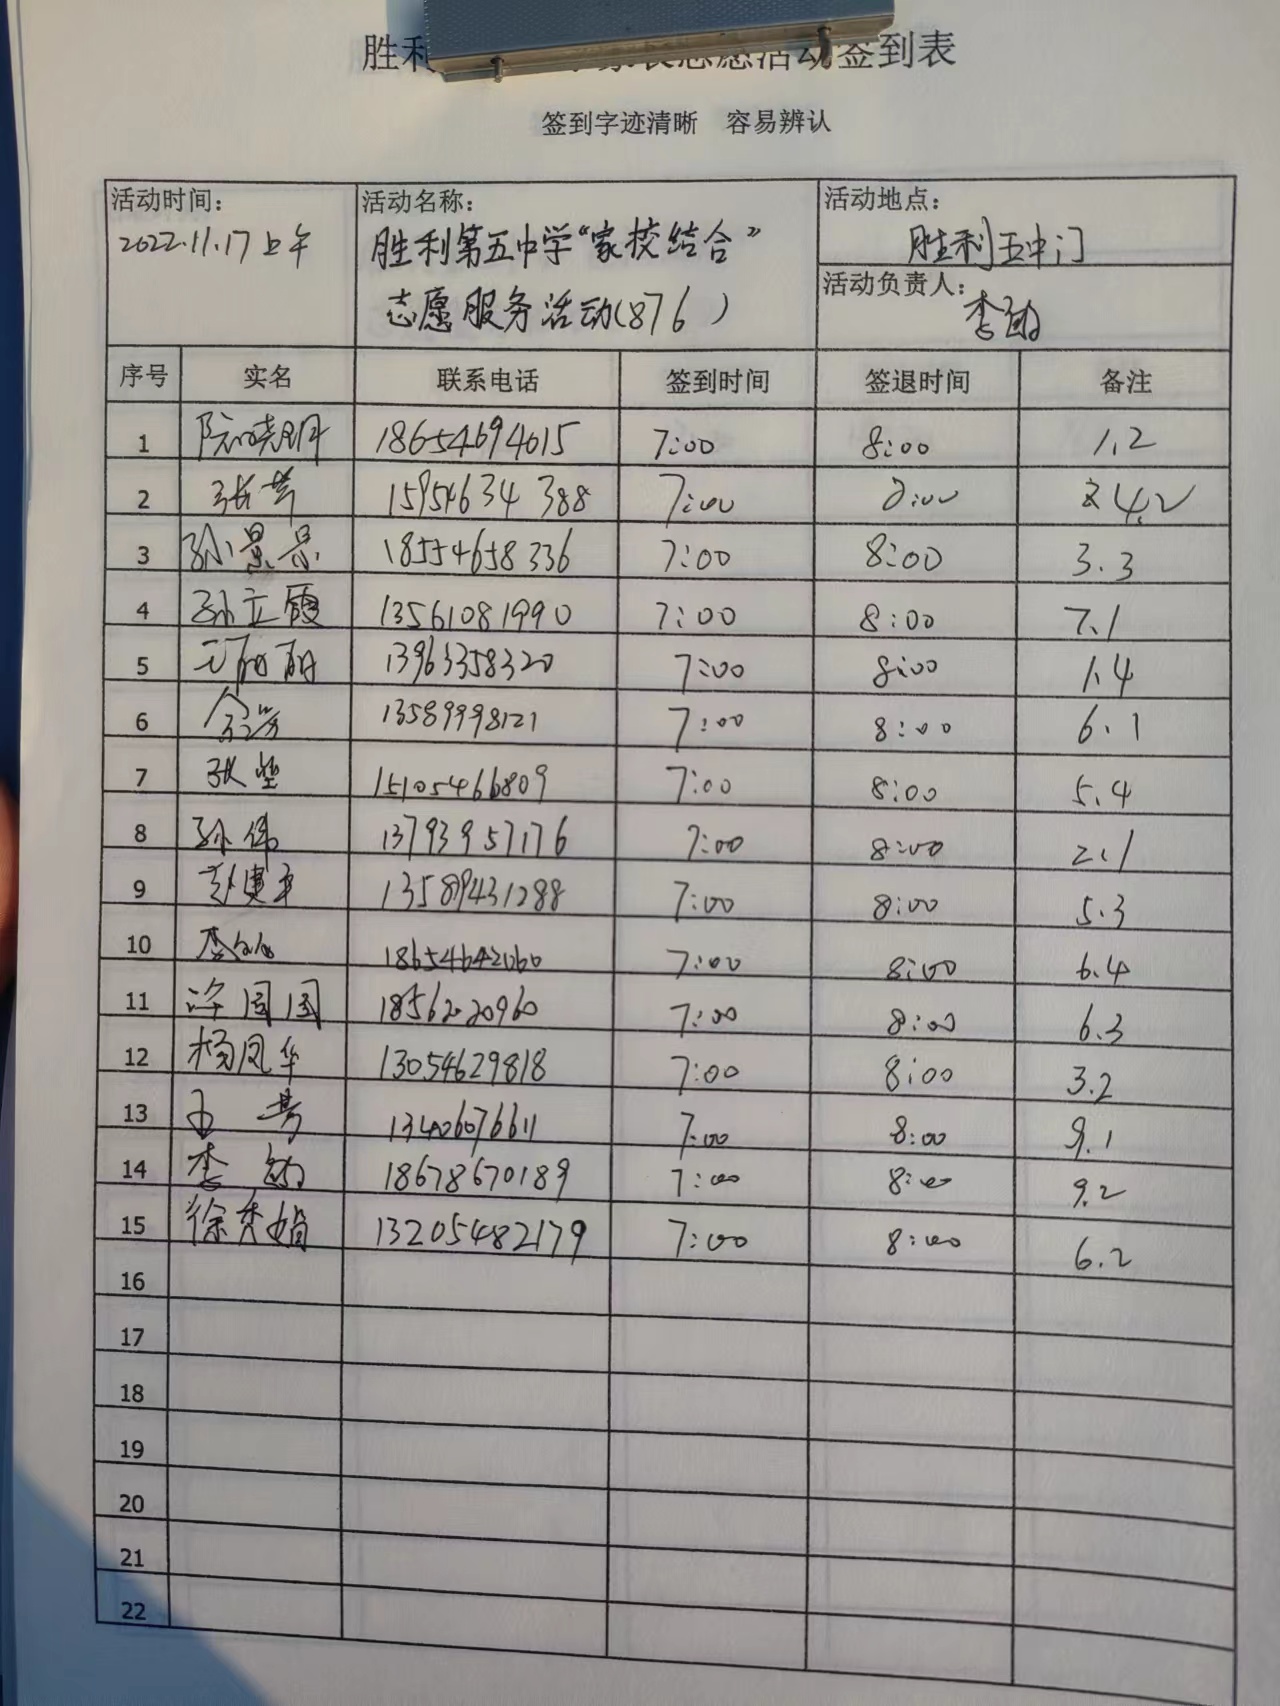 胜利 志愿活动签到表
签到字迹清晰 容易辨认
活动时间：
2022.11.17上午
活动名称：
胜利第五中学“家校结合”
志愿服务活动(876 )
活动地点：
胜利五中门
活动负责人：
李
序号 实名 联系电话 签到时间 签退时间 备注
1 晓丹 18654694015 7:00 8:00 1.2
2 张 15954634388 7:00 8:00 4.2
3 孙景景 18554658336 7:00 8:00 3.3
4 孙立霞 13561081990 7:00 8:00 7.1
5 丽丽 13963358320 7:00 8:00 1.4
6 13589998121 7:00 8:00 6.1
7 张坚 15105466809 7:00 8:00 5.4
8 孙伟 13793957176 7:00 8:00 2.1
9 赵建军 13589431288 7:00 8:00 5.3
10 李 18654642060 7:00 8:00 6.4
11 许国国 18562020960 7:00 8:00 6.3
12 杨凤华 13054629818 7:00 8:00 3.2
13 王芳 13406076611 7:00 8:00 9.1
14 李 18678670189 7:00 8:00 9.2
15 徐秀娟 13205482179 7:00 8:00 6.2
16
17
18
19
20
21
22